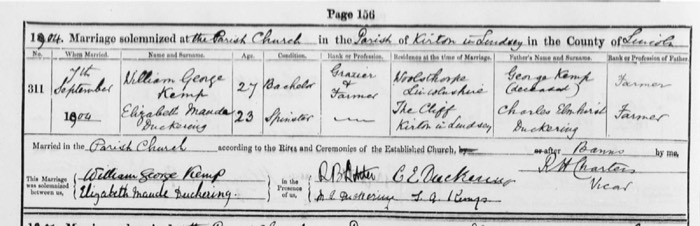 Page 156
1904. Marriage solemnized at the Parish Church in the Parish of Kirton in Lindsey in the County of Lincoln
No. When Married. Name and Surname. Age. Condition. Rank or Profession. Residence at the time of Marriage. Father's Name and Surname. Rank or Profession of Father.
311 7th September 1904 William George Kemp 27 Bachelor Grazier & Farmer Woolsthorpe Lincolnshire George Kemp (deceased) Farmer
Elizabeth Maude Duckering 23 Spinster — The Cliff Kirton in Lindsey Charles Elmhirst Duckering Farmer
Married in the Parish Church according to the Rites and Ceremonies of the Established Church, by or after Banns by me,
This Marriage was solemnized between us, William George Kemp in the Presence of us, C E Duckering R H Charters
Elizabeth Maude Duckering. Duckering Vicar